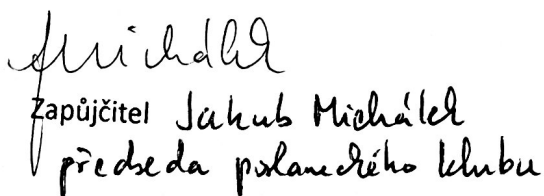 Michálek
Zapůjčitel Jakub Michálek
předseda poslaneckého klubu